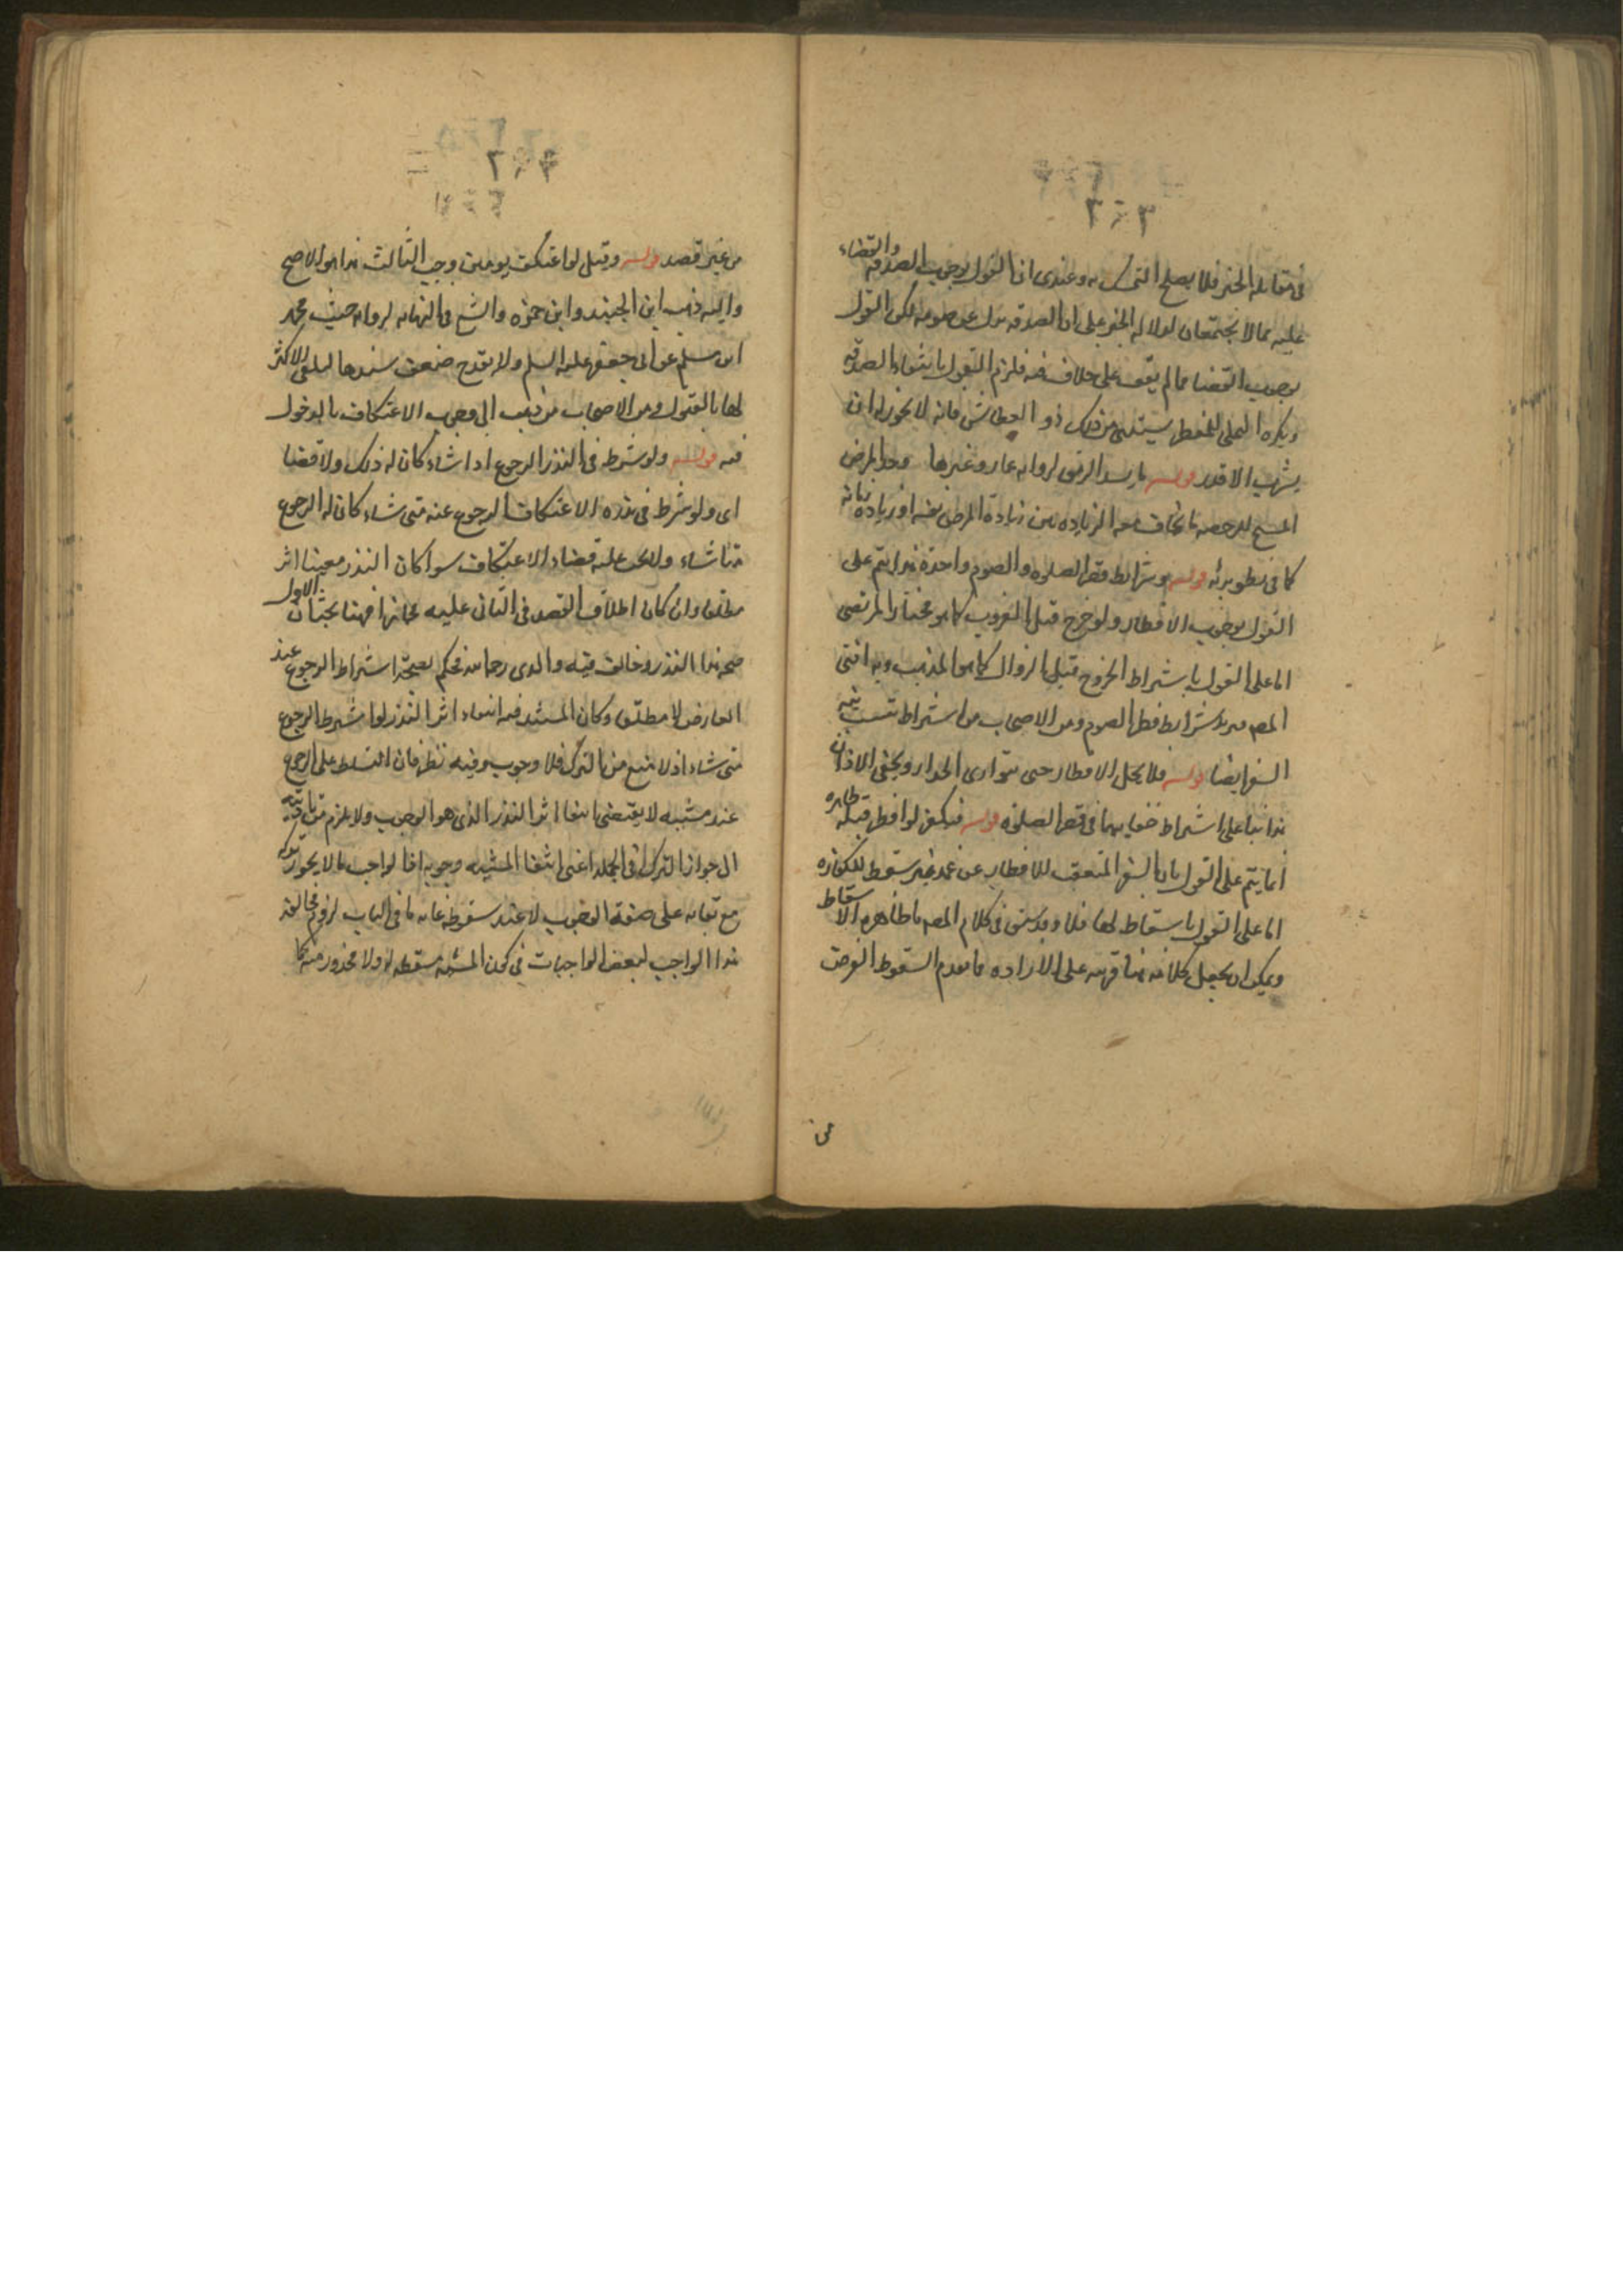 في مقابله الخبر فلا يصلح التمسك به وعندى ان القول بوجوب الصدقه والقضاء
عليه مما لا يجتمعان لدلاله الخبر على ان الصدقه بدل عن صومه لكن القول
بوجوب القضا مما لم يقف على خلاف فيه فلزم القول بانتفاء الصدقه
ويكره التملى للمفطر يستثنى من ذلك ذو العطاش فانه لا يجوز له ان
يشرب الا قدر قوله ما يسد الرمق لروايه عمار وغيرها وحد المرض
المبيح للرخصه ما يخاف معه الزياده بين زيادة المرض نفسه او زياده زمانه
كما في بطو برئه قوله وشرايط قصر الصلوه والصوم واحدة هذا يتم على
القول بوجوب الافطار ولو خرج قبل الغروب كما هو مختار المرتضى
اما على القول باشتراط الخروج قبل الزوال كما هو المذهب وبه افتى
المصـ شرايط فطر الصوم ومن الاصحاب من اشتراط تبييت نيه
السفر ايضا قوله فلا يحل الافطار حتى يتوارى الجدار ويخفى الاذان
هذا بناء على اشتراط خفايهما في قصر الصلوه قوله فيكفر لو افطر قبله ظاهره
انما يتم على القول بان السفر المتعقب للافطار عن عمد غير مسقط للكفاره
اما على القول باسقاط لها فلا وقد سبق في كلام المصـ ما ظاهره الاسقاط
ويمكن ان يجعل كلامه هنا قرينه على الاراده فيما تقدم السقوط الفرض
من
٢٠٢
من غير قصد قوله وقيل لو اعتكف يومين وجب الثالث هذا هو الاصح
واليه ذهب ابن الجنيد وابن حمزه والشيخ في النهايه لروايه محمد
ابن مسلم عن ابى جعفر عليه السلم ولا يقدح ضعف سندها لتلقى الاكثر
لها بالقبول ومن الاصحاب من ذهب الى وجوب الاعتكاف بالدخول
فيه قوله ولو شرط في النذر الرجوع اذا شاء كان له ذلك ولا قضا
اى ولو شرط في نذره الاعتكاف الرجوع عنه متى شاء كان له الرجوع
متا شاء ولا يجب عليه قضاء الاعتكاف سوا كان النذر معينا اثر
مطلقا وان كان اطلاق القصد في الثانى عليه مجازا فهنا بحثان الاول
صحه هذا النذر وخالف فيه والدى رحمه الله فحكم بصحة اشتراط الرجوع عند
العارض لا مطلقا وكان المستند فيه انتفاء اثر النذر لو اشترط الرجوع
متى شاء اذ لا منع من الترك فلا وجوب وفيه نظر فان التسلط على الرجوع
عند مشيته لا يقتضى انتفا اثر النذر الذى هو الوجوب ولا يلزم من تاديته
الى جواز الترك في الجمله اعنى انتفا المشيه وجوبه اذ الواجب ما لا يجوز تركه
مع بقايه على صفة الوجوب لا عند سقوطه غايه ما في الباب لزوم مخالفه
هذا الواجب لبعض الواجبات في كون المشيه مسقطه له ولا محذور منه كما